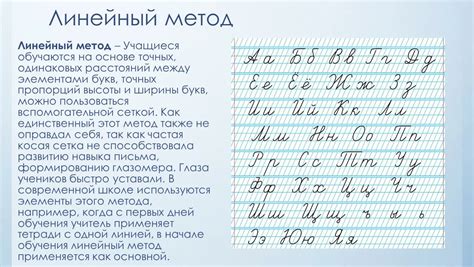 Линейный метод
Линейный метод – Учащиеся
обучаются на основе точных,
одинаковых расстояний между
элементами букв, точных
пропорций высоты и ширины букв,
можно пользоваться
вспомогательной сеткой. Как
единственный этот метод также не
оправдал себя, так как частая
косая сетка не способствовала
развитию навыка письма,
формированию глазомера. Глаза
учеников быстро уставали. В
современной школе используются
элементы этого метода,
например, когда с первых дней
обучения учитель применяет
тетради с одной линией, в начале
обучения линейный метод
применяется как основной.
Аа Бб Вв Гг Дд
Ее Её Жж Зз
Ии Йй Кк Лл
Мм Нн Оо Пп
Рр Сс Тт Уу
Фф Хх Цц Чч
Шш Щщ ъ ы ь
Ээ Юю Яя